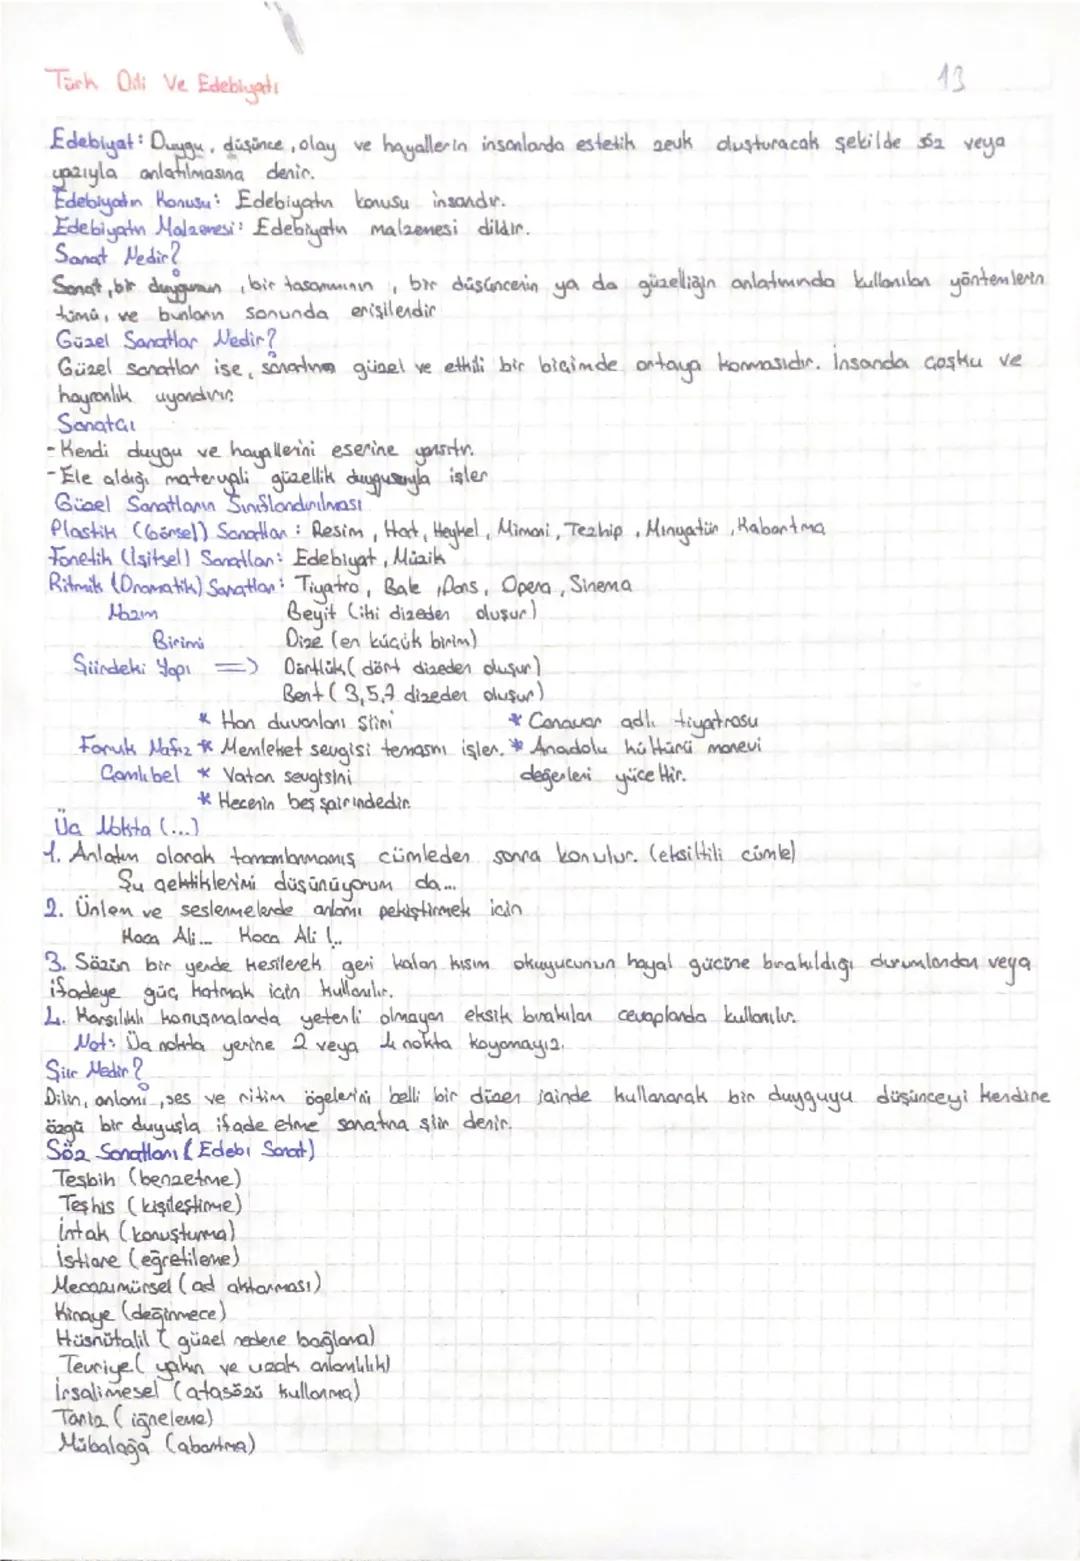 Türk Dili Ve Edebiyatı 13
Edebiyat: Duygu, düşünce, olay ve hayallerin insanlarda estetik zevk oluşturacak şekilde söz veya
yazıyla anlatılmasına denir.
Edebiyatın Konusu: Edebiyatın konusu insandır.
Edebiyatın Malzemesi: Edebiyatın malzemesi dildir.
Sanat Nedir?
Sanat, bir duygunun, bir tasarımının, bir düşüncenin ya da güzelliğin anlatımında kullanılan yöntemlerin
tümü, ve bunların sonunda erişilendir
Güzel Sanatlar Nedir?
Güzel sanatlar ise, sanatın güzel ve etkili bir biçimde ortaya konmasıdır. İnsanda coşku ve
hayranlık uyandırır.
Sanatçı
- Kendi duygu ve hayallerini eserine yansıtır.
- Ele aldığı materyali güzellik duygusuyla işler
Güzel Sanatların Sınıflandırılması
Plastik (Görsel) Sanatlar: Resim, Hat, Heykel, Mimari, Tezhip, Minyatür, Kabartma
Fonetik (İşitsel) Sanatlar: Edebiyat, Müzik
Ritmik (Dramatik) Sanatlar: Tiyatro, Bale, Dans, Opera, Sinema
Nazım Beyit (iki dizeden oluşur)
Birimi Dize (en küçük birim)
Şiirdeki Yapı => Dörtlük (dört dizeden oluşur)
Bent (3,5,7 dizeden oluşur)
* Han duvarları şiiri * Canavar adlı tiyatrosu
Faruk Nafız * Memleket sevgisi temasını işler. * Anadolu kültürü manevi
Çamlıbel * Vatan sevgisini değerleri yüceltir.
* Hecenin beş şairindedir.
Üç Nokta (...)
1. Anlatım olarak tamamlanmamış cümleden sonra konulur. (eksiltili cümle)
Şu çektiklerimi düşünüyorum da...
2. Ünlem ve seslenmelerde anlamı pekiştirmek için
Koca Ali... Koca Ali!..
3. Sözün bir yerde kesilerek geri kalan kısım okuyucunun hayal gücüne bırakıldığı durumlardan veya
ifadeye güç katmak için kullanılır.
4. Karşılıklı konuşmalarda yeterli olmayan eksik bırakılan cevaplarda kullanılır.
Not: Üç nokta yerine 2 veya 4 nokta koyamayız.
Şiir Nedir?
Dilin, anlamı, ses ve ritim ögelerini belli bir düzen içinde kullanarak bir duyguyu düşünceyi kendine
özgü bir duyuşla ifade etme sanatına şiir denir.
Söz Sanatları (Edebi Sanat)
Teşbih (benzetme)
Teşhis (kişileştirme)
İntak (konuşturma)
İstiare (eğretileme)
Mecazımürsel (ad aktarması)
Kinaye (değinmece)
Hüsnütalil (güzel nedene bağlama)
Tevriye (yakın ve uzak anlamlılık)
İrsalimesel (atasözü kullanma)
Tariz (iğneleme)
Mübalağa (abartma)